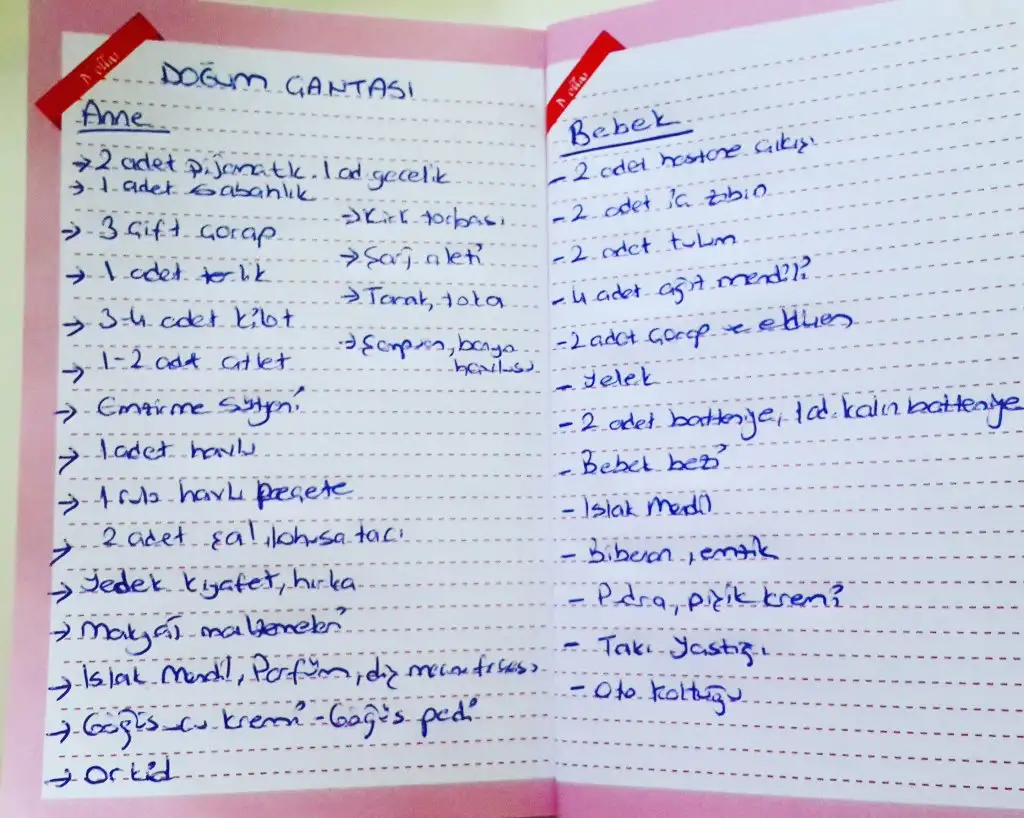 DOĞUM ÇANTASI
Anne
→ 2 adet pijamatk. 1 ad gecelik
→ 1 adet sabahlık
→ 3 çift çorap
→ 1 adet terlik
→ 3-4 adet kilot
→ 1-2 adet atlet
→ Emzirme sütyeni
→ 1 adet havlu
→ 1 rulo havlu peçete
→ 2 adet şal, lohusa tacı
→ Yedek kıyafet, hırka
→ Makyaj malzemeleri
→ Islak Mendil, Parfüm, diş macunu fırçası
→ Göğüs ucu kremi - Göğüs pedi
→ Orkid
→ Kirli torbası
→ Şarj aleti
→ Tarak, toka
→ Şampuan, banyo
havlusu
Bebek
- 2 adet hastane çıkışı
- 2 adet iç zıbın
- 2 adet tulum
- 4 adet ağız mendili
- 2 adet çorap ve eldiven
- Yelek
- 2 adet battaniye, 1 ad. kalın battaniye
- Bebek bezi
- Islak Mendil
- Biberon, emzik
- Pudra, pişik kremi
- Takı Yastığı
- Oto koltuğu